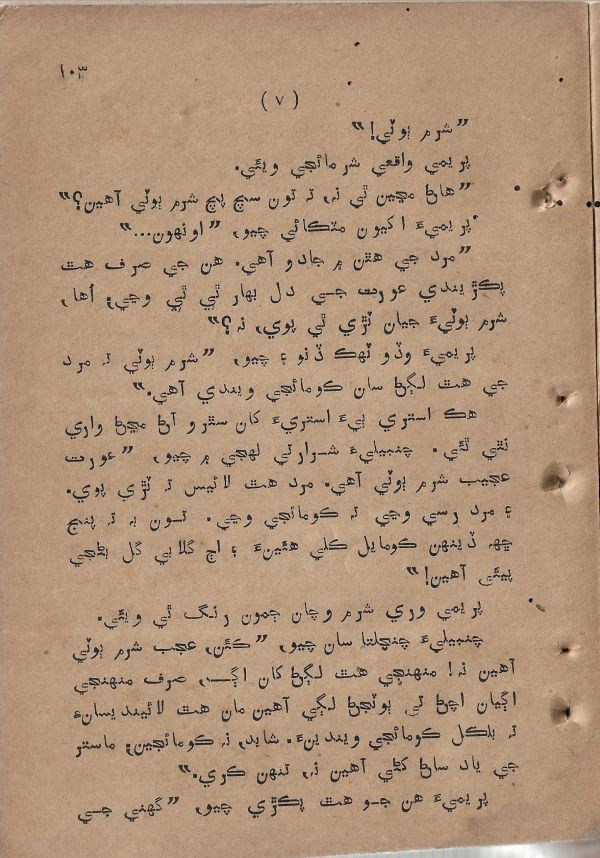 ۱۰۳
( ۷ )
”شرم ٻوٽي!“
پريمي واقعي شرمائجي ويئي.
”هاڻ مڃين ٿي نہ، تہ تون سچ پچ شرم ٻوٽي آهين؟“
پريميءَ اکيون مٽڪائي چيو، ”اونهون...“
”مرد جي هٿن ۾ جادو آهي. هن جي صرف هٿ
پڪڙيندي عورت جي دل بهار ٿي ٿي وڃي؛ اُها،
شرم ٻوٽيءَ جيان ٽڙي ٿي پوي، نہ؟“
پريميءَ وڏو ٽهڪ ڏنو ۽ چيو، ”شرم ٻوٽي تہ مرد
جي هٿ لڳڻ سان ڪومائجي ويندي آهي.“
هڪ استري ٻيءَ استريءَ کان سٿرو آڻ مڃڻ واري
نٿي ٿئي. چنبيليءَ شرارتي لهجي ۾ چيو، ”عورت
عجيب شرم ٻوٽي آهي. مرد هٿ لائيس تہ ٽڙي پوي.
۽ مرد رسي وڃي تہ ڪومائجي وڃي. تون بہ تہ پنج
ڇهہ ڏينهن ڪومايل ڪلي هئينءَ ۽ اڄ گلابي گل بڻجي
پيئي آهين!“
پريمي وري شرم وچان ڄمون رنگ ٿي ويئي.
چنبيليءَ چنچلتا سان چيو، ”ڪٿن، عجب شرم ٻوٽي
آهين نہ! منهنجي هٿ لڳڻ کان اڳ، صرف منهنجي
اڳيان اچڻ تي ٻوٽجڻ لڳي آهين مان هٿ لائينديسانءِ
تہ بلڪل ڪومائجي ويندينءَ. شايد، نہ ڪومائجين؛ ماستر
جي ياد ساڻ کڻي آهين نہ، تنهن ڪري.“
پريميءَ هن جو هٿ پڪڙي چيو، ”گهڻي جي